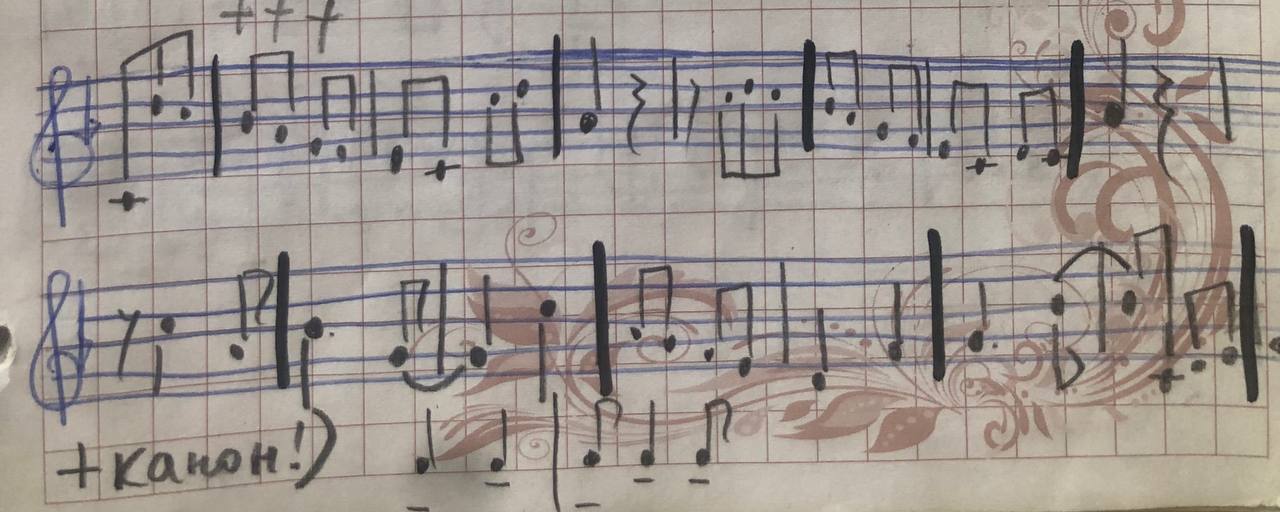 +++
+канон!)